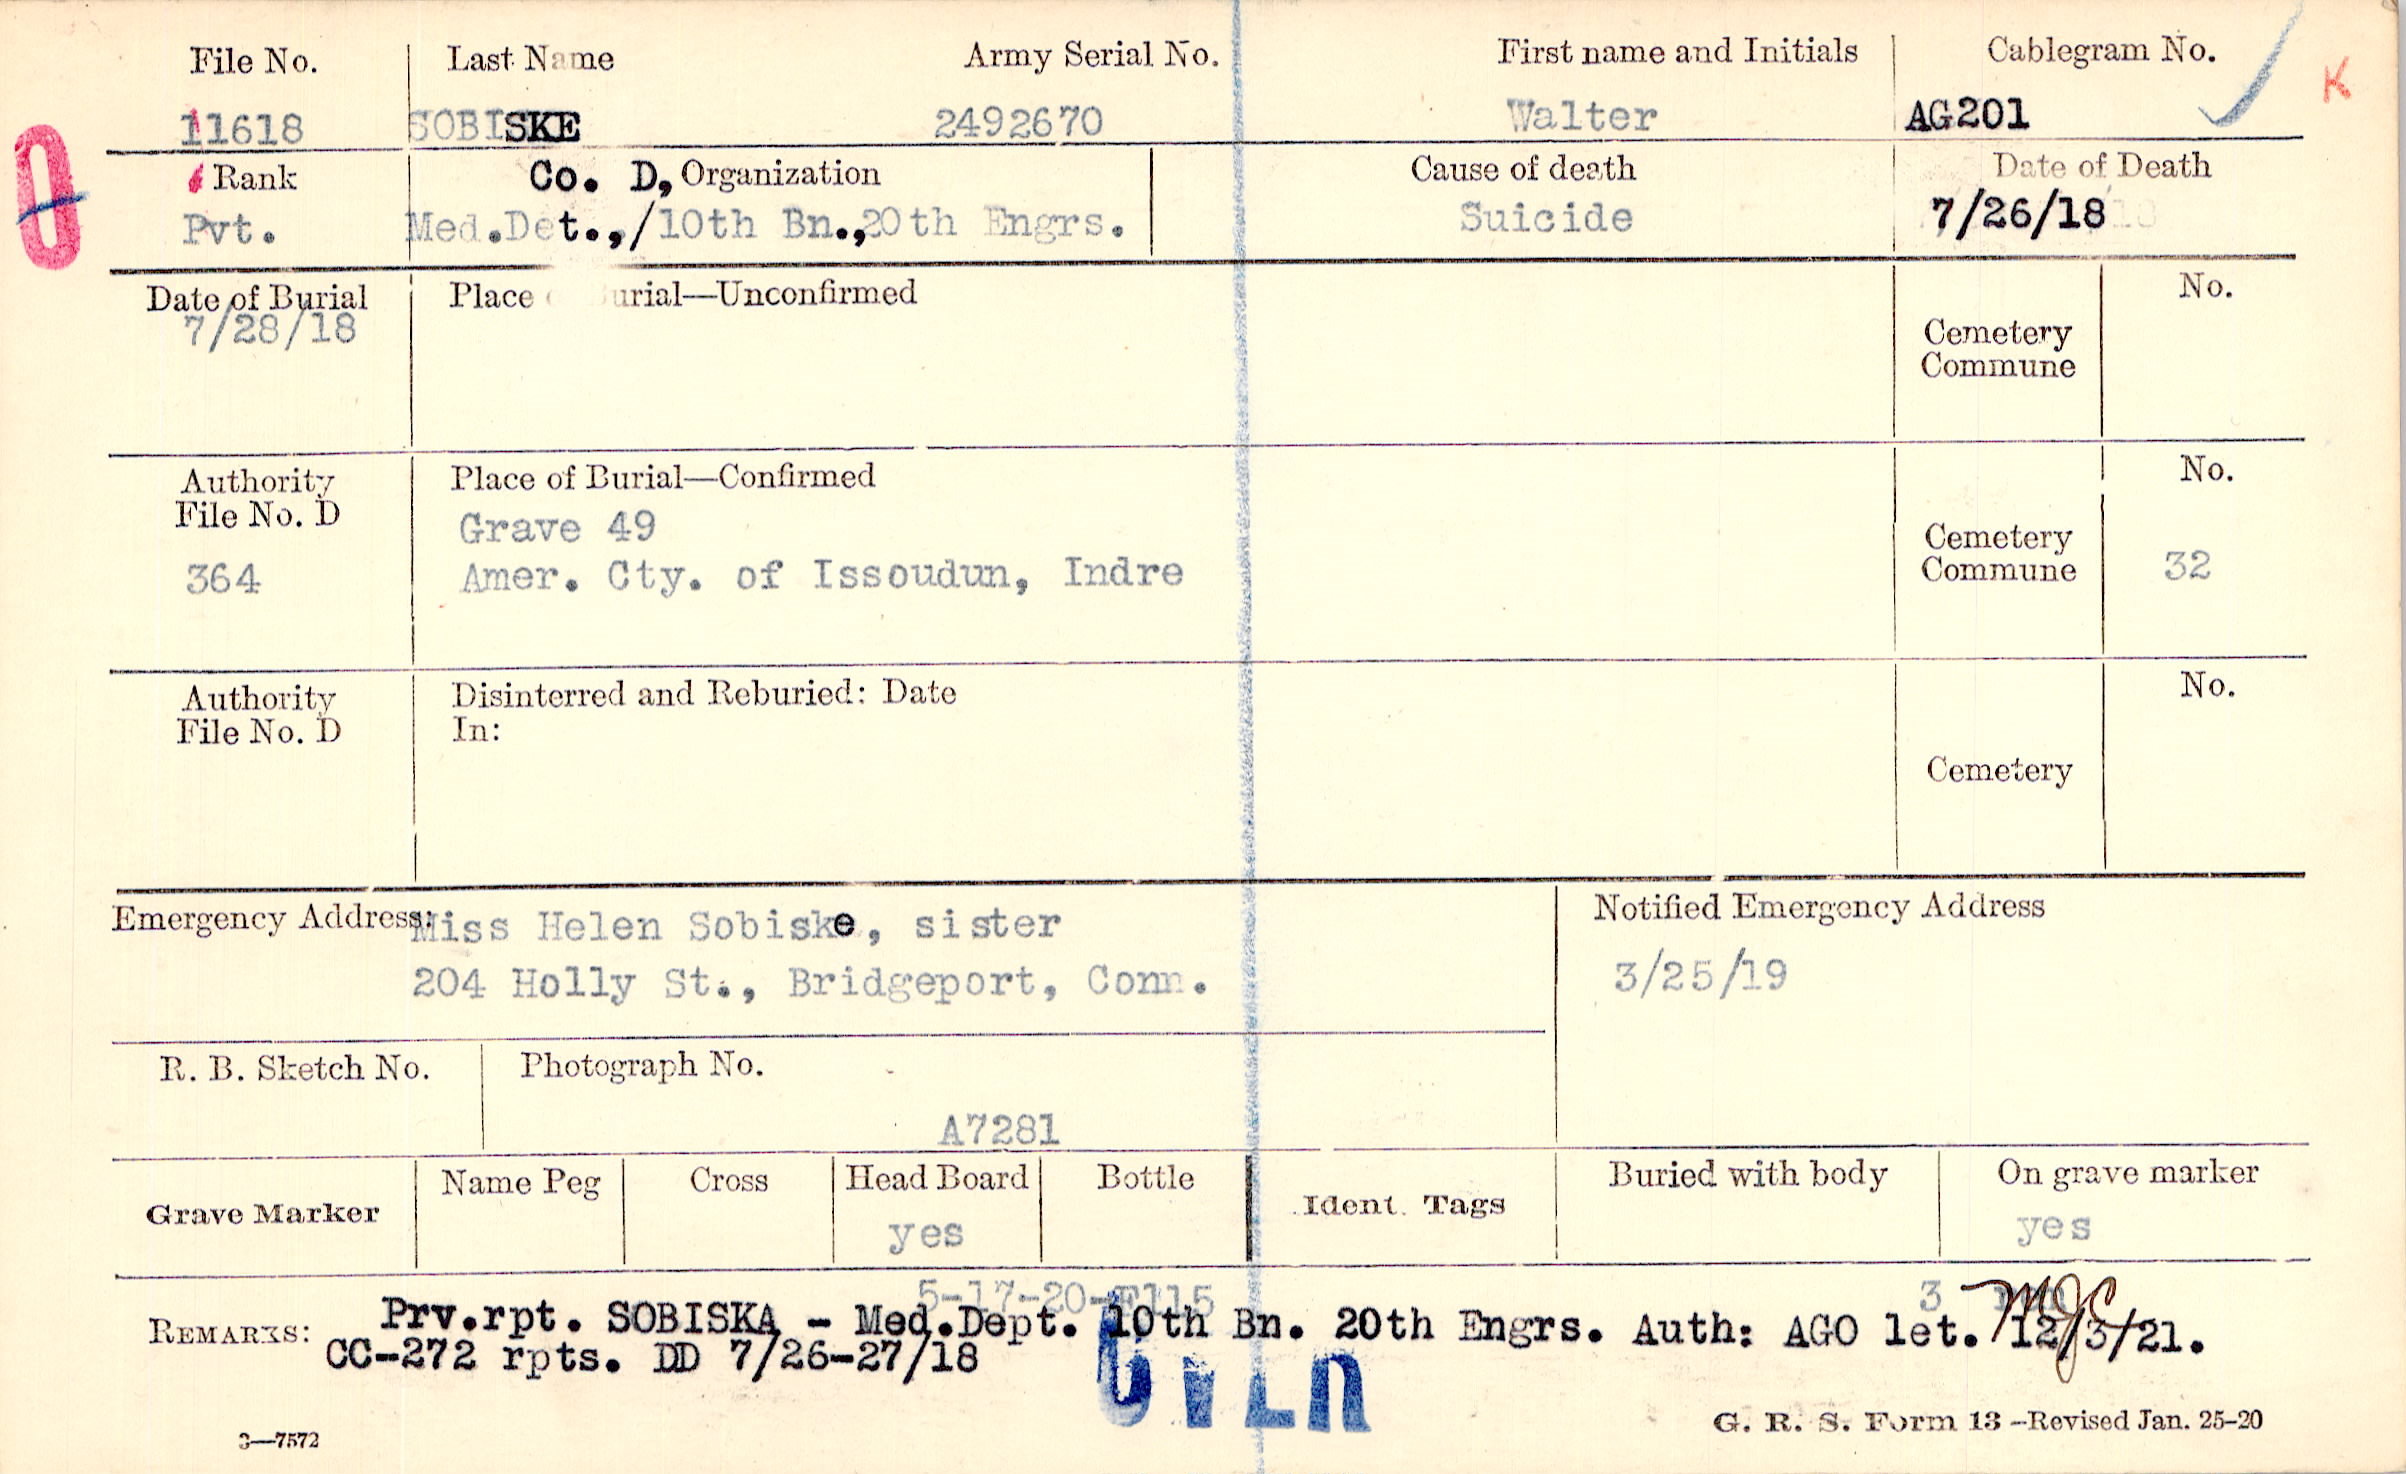 File No. Last Name Army Serial No. First name and Initials Cablegram No.
K
11618 SOBISKE 2492670 Walter AG201
O
Rank Co. D, Organization Cause of death Date of Death
Pvt. Med.Det.,/10th Bn.,20th Engrs. Suicide 7/26/18
Date of Burial Place urial—Unconfirmed No.
7/28/18
Cemetery
Commune
Authority Place of Burial—Confirmed No.
File No. D
Grave 49
Cemetery
364 Amer. Cty. of Issoudun, Indre Commune 32
Authority Disinterred and Reburied: Date No.
File No. D In:
Cemetery
Emergency Address: Miss Helen Sobiske, sister Notified Emergency Address
204 Holly St., Bridgeport, Conn. 3/25/19
R. B. Sketch No. Photograph No.
A7281
Grave Marker Name Peg Cross Head Board Bottle Ident. Tags Buried with body On grave marker
yes yes
5-17-20-F115 3
REMARKS: Prv.rpt. SOBISKA - Med.Dept. 10th Bn. 20th Engrs. Auth: AGO let. 12/3/21.
CC-272 rpts. DD 7/26-27/18
OVER
3—7572 G. R. S. Form 13—Revised Jan. 25-20